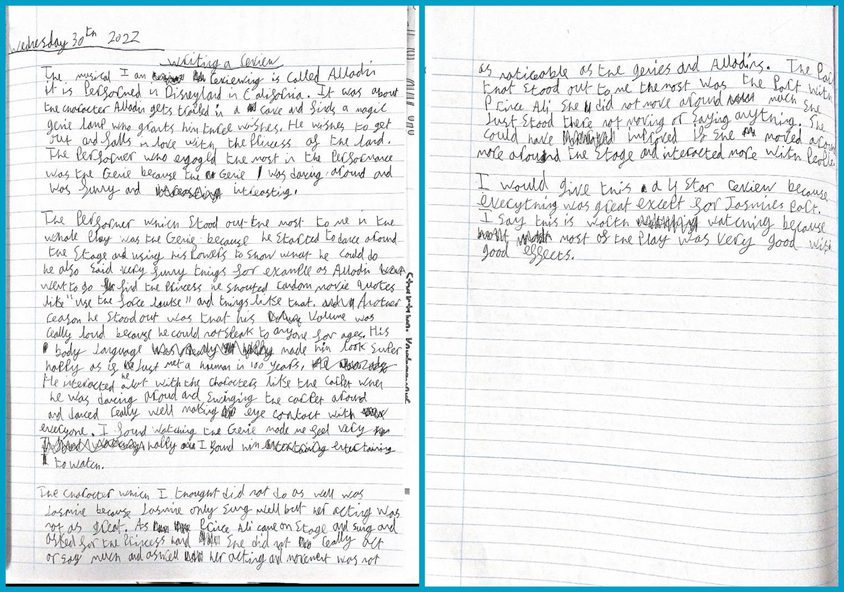 Wednesday 30th 2022
Writing a review
The musical I am reviewing is called Alladin
it is performed in Disneyland in California. It was about
the character Alladin gets traled in a cave and finds a magic
genie lamp who grants him three wishes. He wishes to get
out and falls in love with the Princess of the land.
The Performer who engaged the most in the Performance
was the Genie because the Genie was dancing around and
was funny and intreasting.
The Performer which Stood out the most to me in the
whole Play was the Genie because he started to dance around
the Stage and using his Powers to show what he could do
he also said very funny things for example as Alladin
went to go find the Princess he shouted random movie quotes
like "use the force louise" and things like that. Another
reason he Stood out was that his Volume was
really loud because he could not speak to anyone for ages. His
body language made him look super
happy as if he Just met a human in 100 years.
He interacted alot with the characters like the carpet when
he was dancing around and swinging the carpet around
and danced really well making eye contact with
everyone. I found watching the Genie made me feel very
happy and I found him entertaining
to watch.
The character which I thought did not do as well was
Jasmine because Jasmine only sung well but her acting was
not as great. As Prince Ali came on Stage and sung and
asked for the Princess hand She did not really act
or say much and aswell her acting and movement was not
as noticeable as the genies and Alladins. The Part
that Stood out to me the most was the Part with
Prince Ali She did not move around much She
Just Stood there not moving or saying anything. She
could have improved if She moved around
more around the Stage and interacted more with People.
I would give this a 4 star review because
everything was great except for Jasmines Part.
I say this is worth watching because
most of the Play was very good with
good effects.